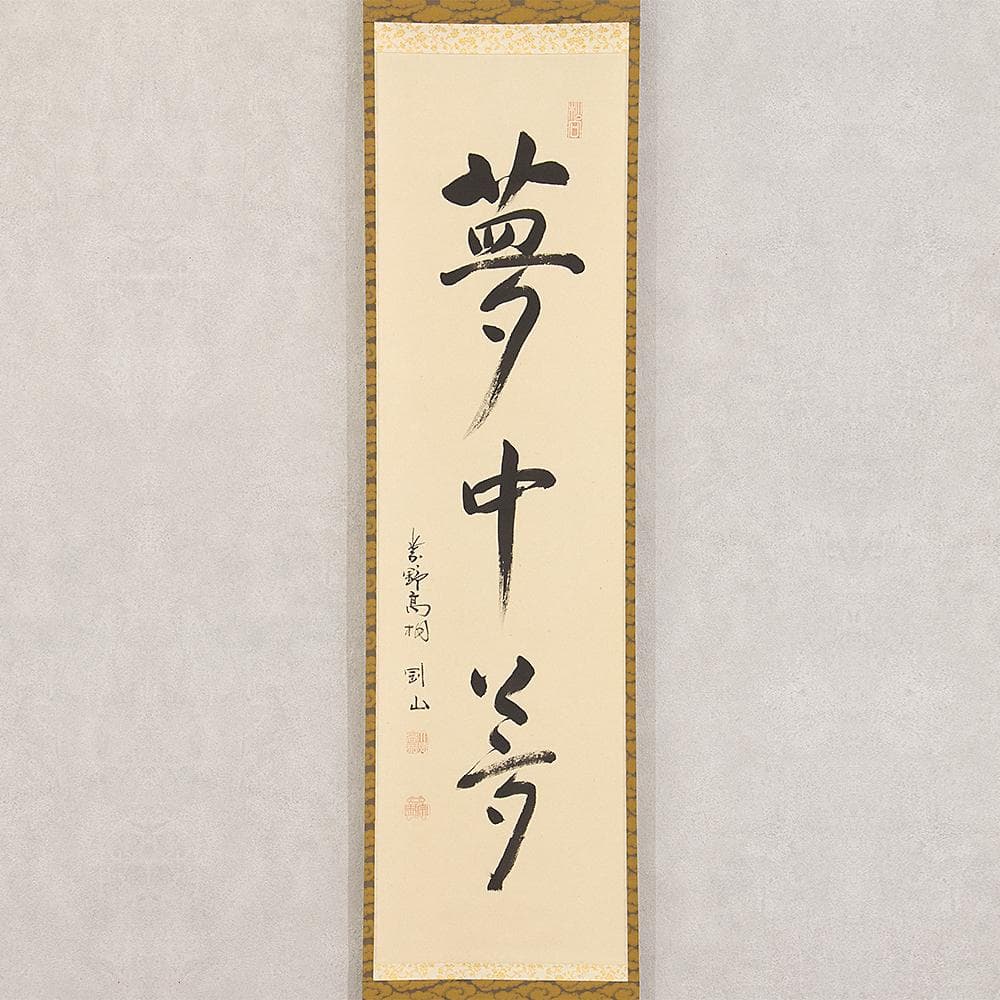 夢中夢
紫野高桐 剛山